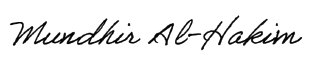 Mundhir Al-Hakim